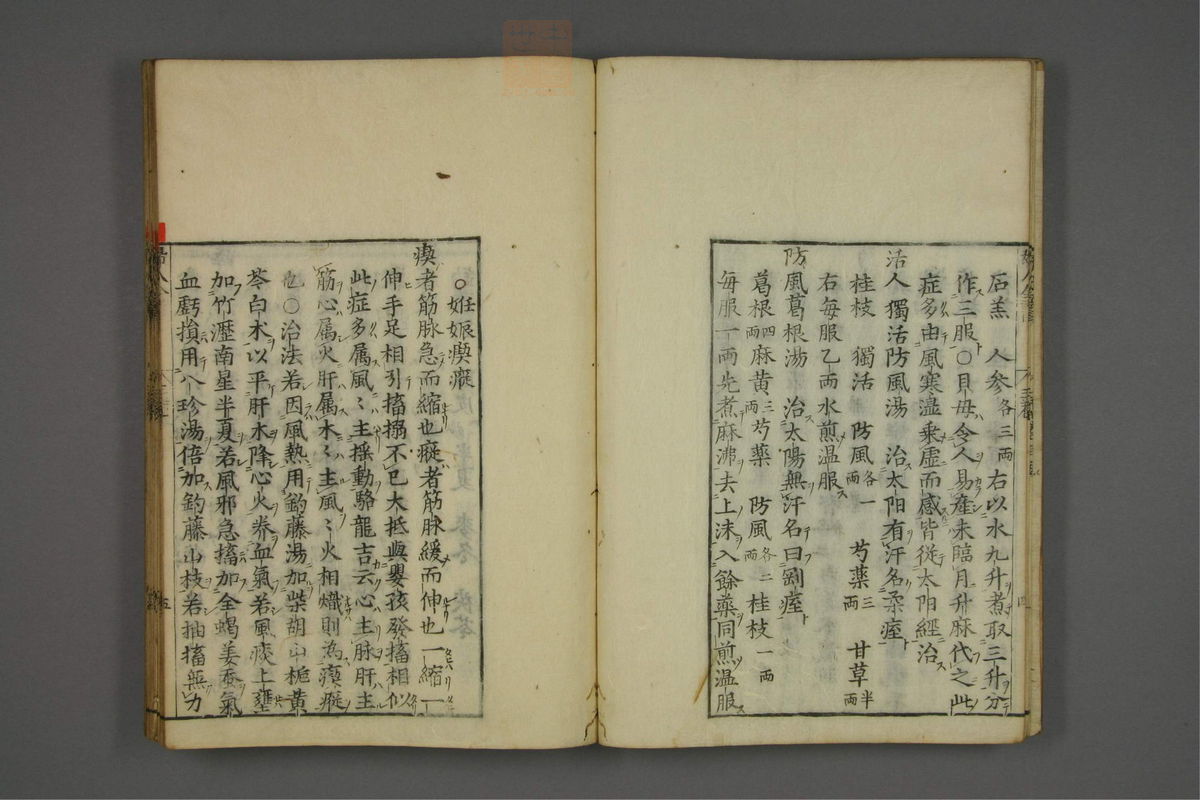 石羔 人参各三両 右以水九升煮取三升分
作三服○貝母令人易産未臨月升麻代之此
症多由風寒湿乗虚而感皆従太阳經治
活人獨活防風湯 治太阳有汗名柔痓
桂枝 獨活 防風各一両 芍薬三両 甘草半両
右每服乙両水煎温服
防風葛根湯 治太陽無汗名曰剛痓
葛根四両 麻黄三両 芍薬 防風各二両 桂枝一両
每服一両先煮麻沸去上沫入餘薬同煎温服
○妊娠瘈瘲
瘈者筋脉急而縮也瘲者筋脉緩而伸也一縮一
伸手足相引搐搦不已大抵與嬰孩發搐相似
此症多属風〻主揺動駱龍吉云心主脉肝主
筋心属火肝属木〻主風〻火相熾則為瘈瘲
也○治法若因風熱用釣藤湯加柴胡山梔黄
芩白木以平肝木降心火养血氣若風痰上壅
加竹瀝南星半夏若風邪急搐加全蝎姜蚕氣
血虧損用八珍湯倍加釣藤山枝若抽搐無力